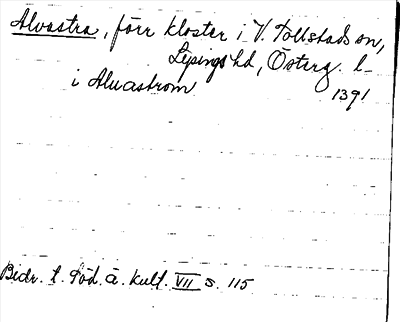 Alvastra, förr kloster i V. Tollstads sn,
Lysings hd, Österg. l.
i Aluastrom
1391
Bidr. t. Söd. ä. kult. VII s. 115